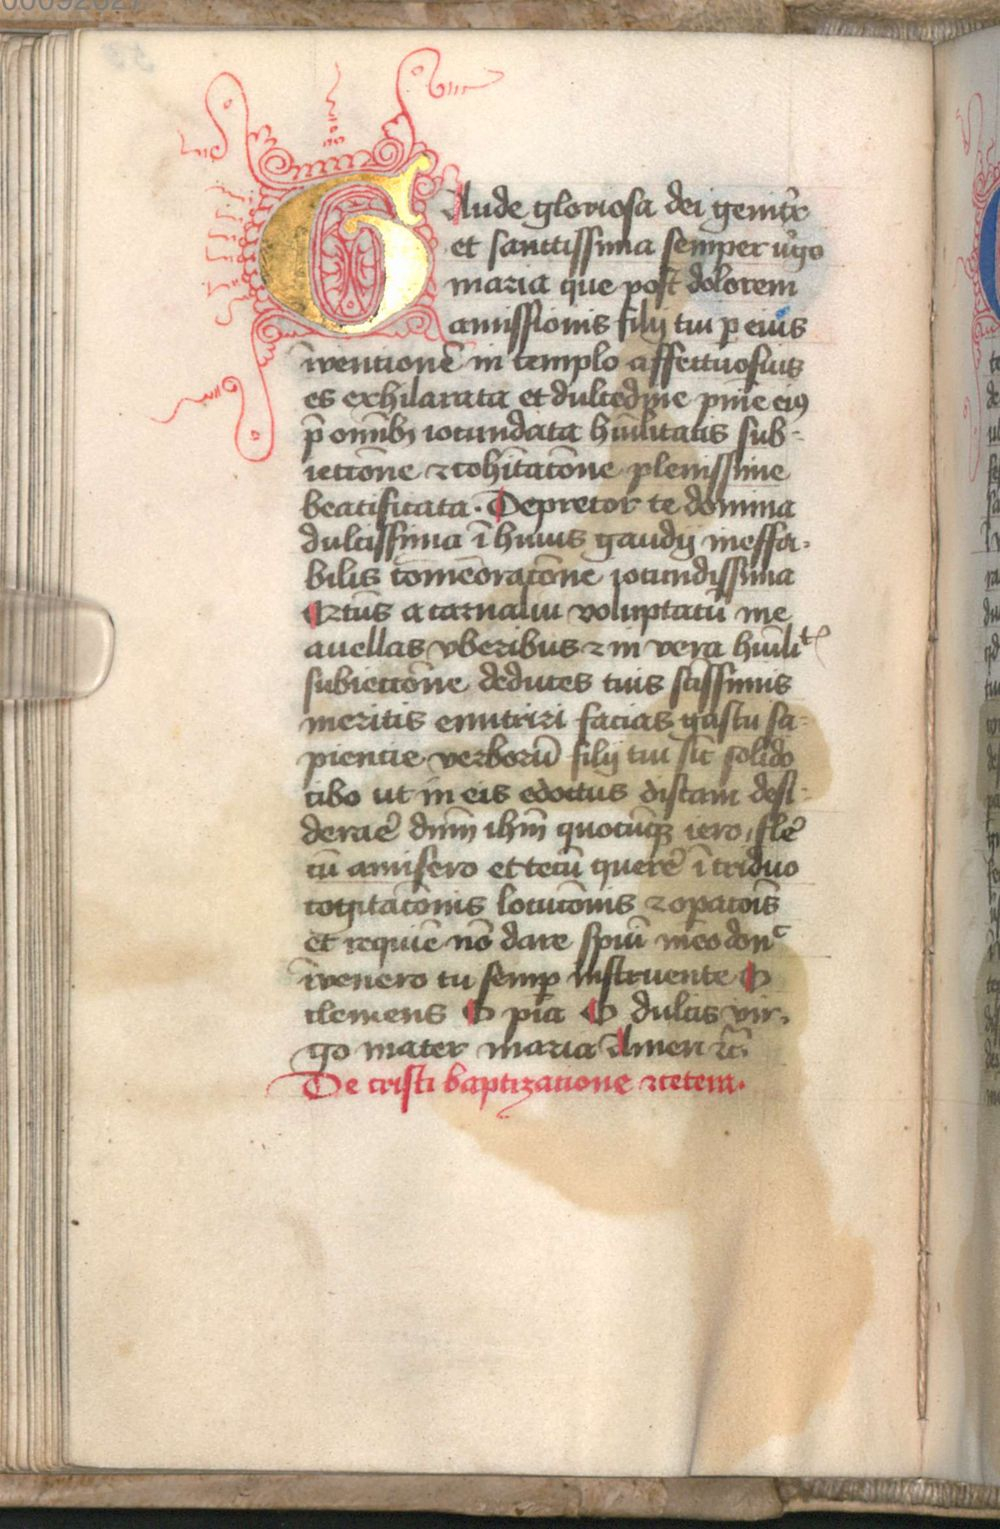 GAude gloriosa dei genitr̃x
et sanctissima semper ṽgo
maria que post dolorem
amissionis filij tui p eius
ĩventionẽ in templo affectuosius
es exhilarata et dulcedine pñie eiꝰ
p̃ omĩbꝫ iocundata hũilitatis sub-
iectiõne ⁊ cohĩtacõne plenissime
beatificata. Deprecor te domina
dulcissima ĩ huius gaudij ineffa-
bilis com̃eoracõne iocundissima
a carnaliũ voluptatũ me
avellas vberibus ⁊ in vera hũilit
subiectiõne deduces tuis sc̃issimis
meritis enutriri facias gustu sa-
piencie verborũ filij tui sic̃ solido
cibo ut in eis edoctus discam desi-
derar̃e dñm ihm̃ quocũqꝫ iero, fler̃e
cũ amisero et tecũ quer̃e ĩ triduo
cogitacõnis locucõnis ⁊ opacõis̃
et requiẽ nõ dare spũi meo donc
ĩvenero tu semp̃ instruente O
clemens O pia O dulcis vir-
go mater maria Amen ⁊c̃
De cristi baptizatione ⁊cetera.